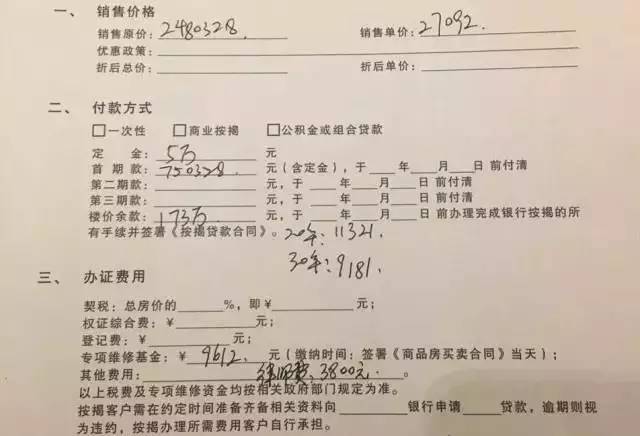 一、 销售价格
销售原价：2480328. 销售单价：27092.
优惠政策：
折后总价： 折后单价：
二、 付款方式
□一次性 □商业按揭 □公积金或组合贷款
定 金：5万 元
首 期 款：750328 元（含定金），于___年___月___日 前付清
第二期款：___元，于___年___月___日 前付清
第三期款：___元，于___年___月___日 前付清
楼价余款：173万 元，于___年___月___日 前办理完成银行按揭的所
有手续并签署《按揭贷款合同》。 20年：11321.
30年：9181.
三、 办证费用
契税：总房价的___%，即￥___元；
权证综合费：￥___元；
登记费：￥___元；
专项维修基金：￥9612 元（缴纳时间：签署《商品房买卖合同》当天）；
其他费用： 律师费、3800元 。
以上税费及专项维修资金均按相关政府部门规定为准。
按揭客户需在约定时间准备齐备相关资料向___银行申请___贷款，逾期则视
为违约，按揭办理所需费用客户自行承担。